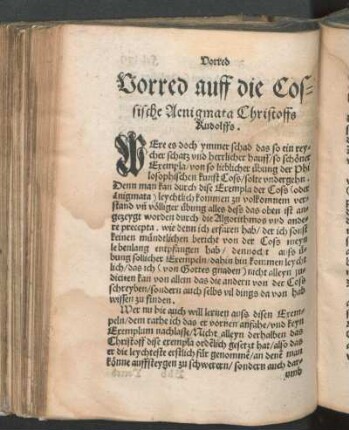 Vorred
Vorred auff die Cos⸗
sische Aenigmata Christoffs
Rudolffs.
WEre es doch ymmer schad das so ein rey⸗
cher schatz vnd herrlicher hauff/ so schöner
Exempla/ von so lieblicher übung der Phi
losophischen kunst Coss/ solte vndergehn.
Denn man kan durch dise Exempla der Coss (oder
ænigmata) leychtlich kommen zu volkommem ver⸗
stand vñ völliger übung alles dess das oben ist an
gezeygt worden durch die Algorithmos vnd ande⸗
re precepta. wie denn ich erfaren hab/ der ich sonst
keinen mündtlichen bericht von der Coss meyn
lebenlang entpfangen hab/ dennocht auss ü⸗
bung sollicher Exempeln/ dahin bin kommen leycht
lich/ das ich (von Gottes gnaden) nicht alleyn iu⸗
dicirn kan von allem das die andern von der Coss
schreyben/ sondern auch selbs vil dings da von hab
wissen zu finden.
Wer nu hie auch will lernen auss disen Exem⸗
peln/ dem rathe ich das er vornen anfahe/ vnd keyn
Exemplum nachlasse/ Nicht alleyn derhalben das
Christoff dise exempla ordēlich gesetzt hat/ also das
er die leychteste erstlich für genommē/ an denē man
könne auffsteygen zu schweren/ sondern auch dar⸗
umb